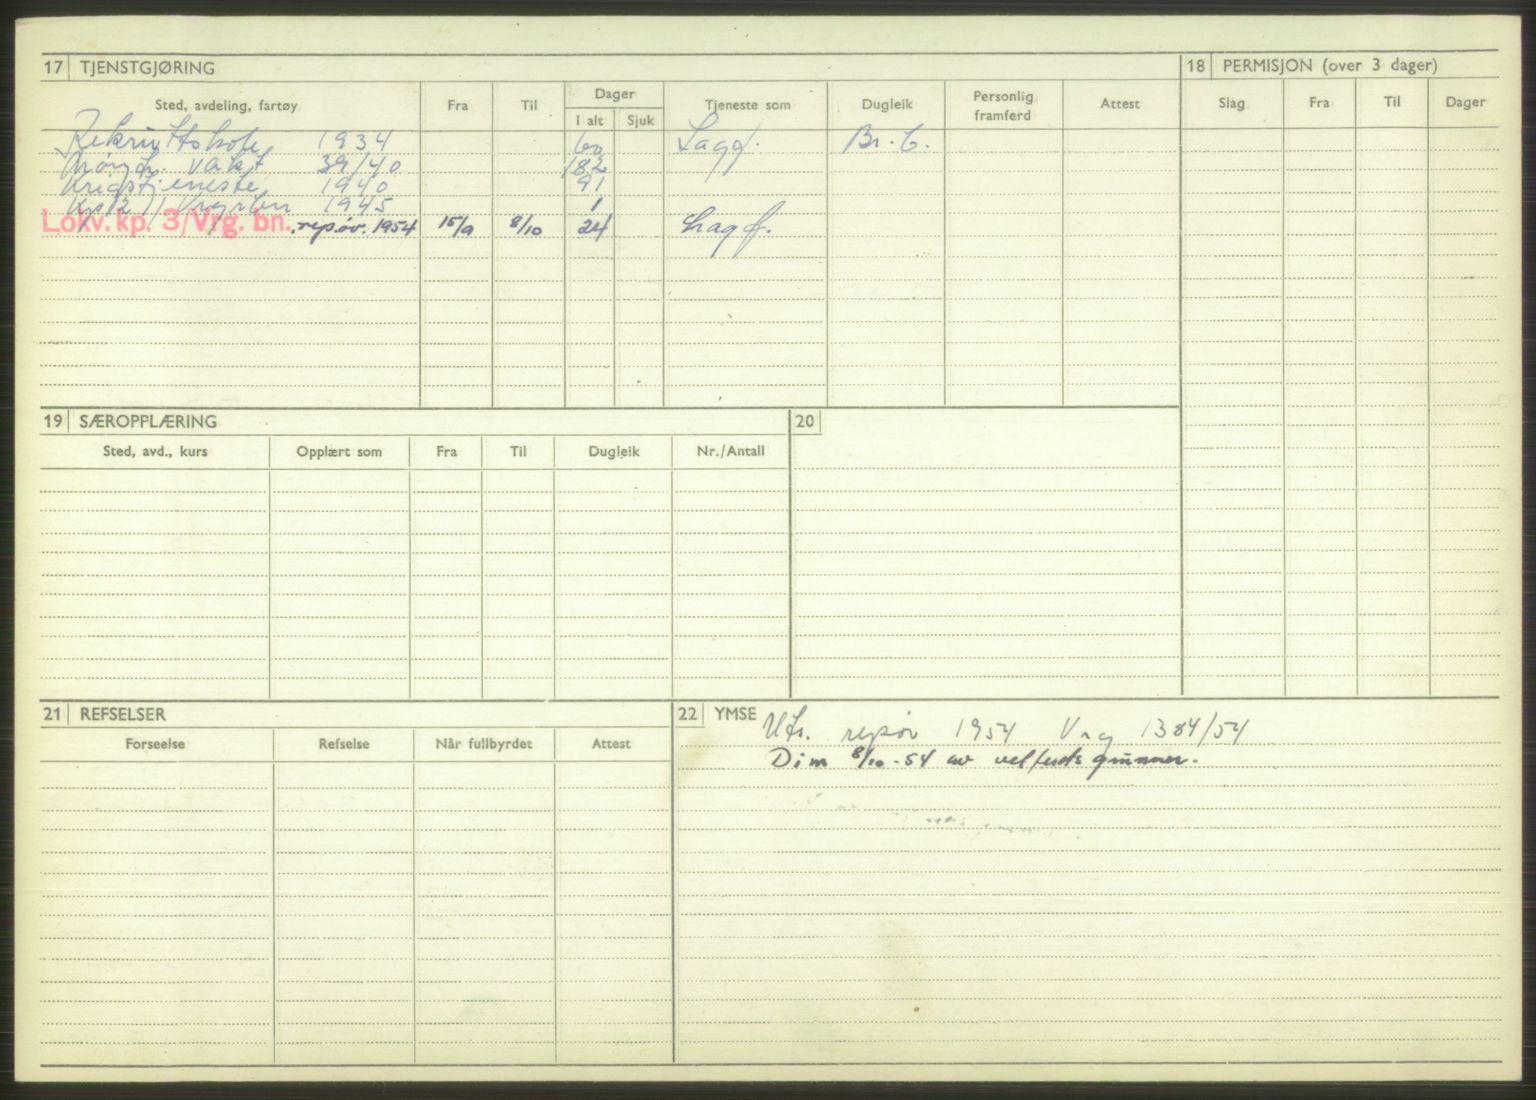 17 TJENSTGJØRING
Sted, avdeling, fartøy Fra Til Dager I alt Sjuk Tjeneste som Dugleik Personlig framferd Attest
Rekruttskole 1934 60 Lagf. Br. C.
vakt 39/40 182
Krigstjeneste 1940 91
1945 1
Lokv. kp. 3/Vrg. bn. repøv. 1954 15/9 8/10 24 Lagf.
18 PERMISJON (over 3 dager)
Slag Fra Til Dager
19 SÆROPPLÆRING
Sted, avd., kurs Opplært som Fra Til Dugleik Nr./Antall
20
21 REFSELSER
Forseelse Refselse Når fullbyrdet Attest
22 YMSE Uts. repøv 1954 Vrg 1384/54
Dim 8/10 - 54 av velferdsgrunner.